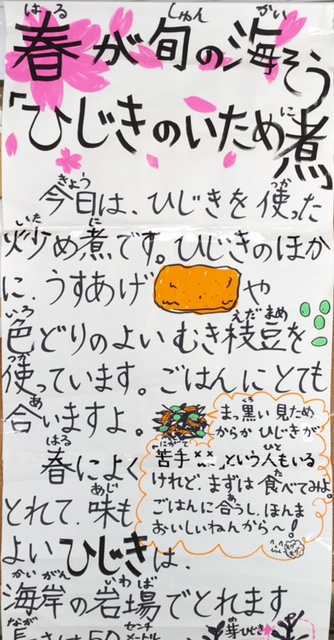 春が旬の海そう
「ひじきのいため煮
今日は、ひじきを使った
炒め煮です。ひじきのほか
に、うすあげや
色どりのよいむき枝豆を
使っています。ごはんにとても
合いますよ。
まっ黒い見ため
からか ひじきが
苦手 ××”という人もいる
けれど、まずは食べてみよ。
ごはんに合うし、ほんま
おいしいねんから〜！
春によく
とれて、味も
よいひじきは、
海岸の岩場でとれます
芽ひじき